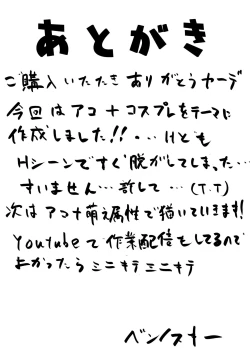 あとがき
ご購入いただきありがとうヤーデ
今回はアコ+コスプレをテーマに
作成しました!!・・・けども
Hシーンですぐ脱がしてしまった…
すいません…許して…(T.T)
次はアコ+萌え属性で描いていきます!
Youtubeで作業配信もしてるので
よかったらミニキテミニキテ
ベンノスキー